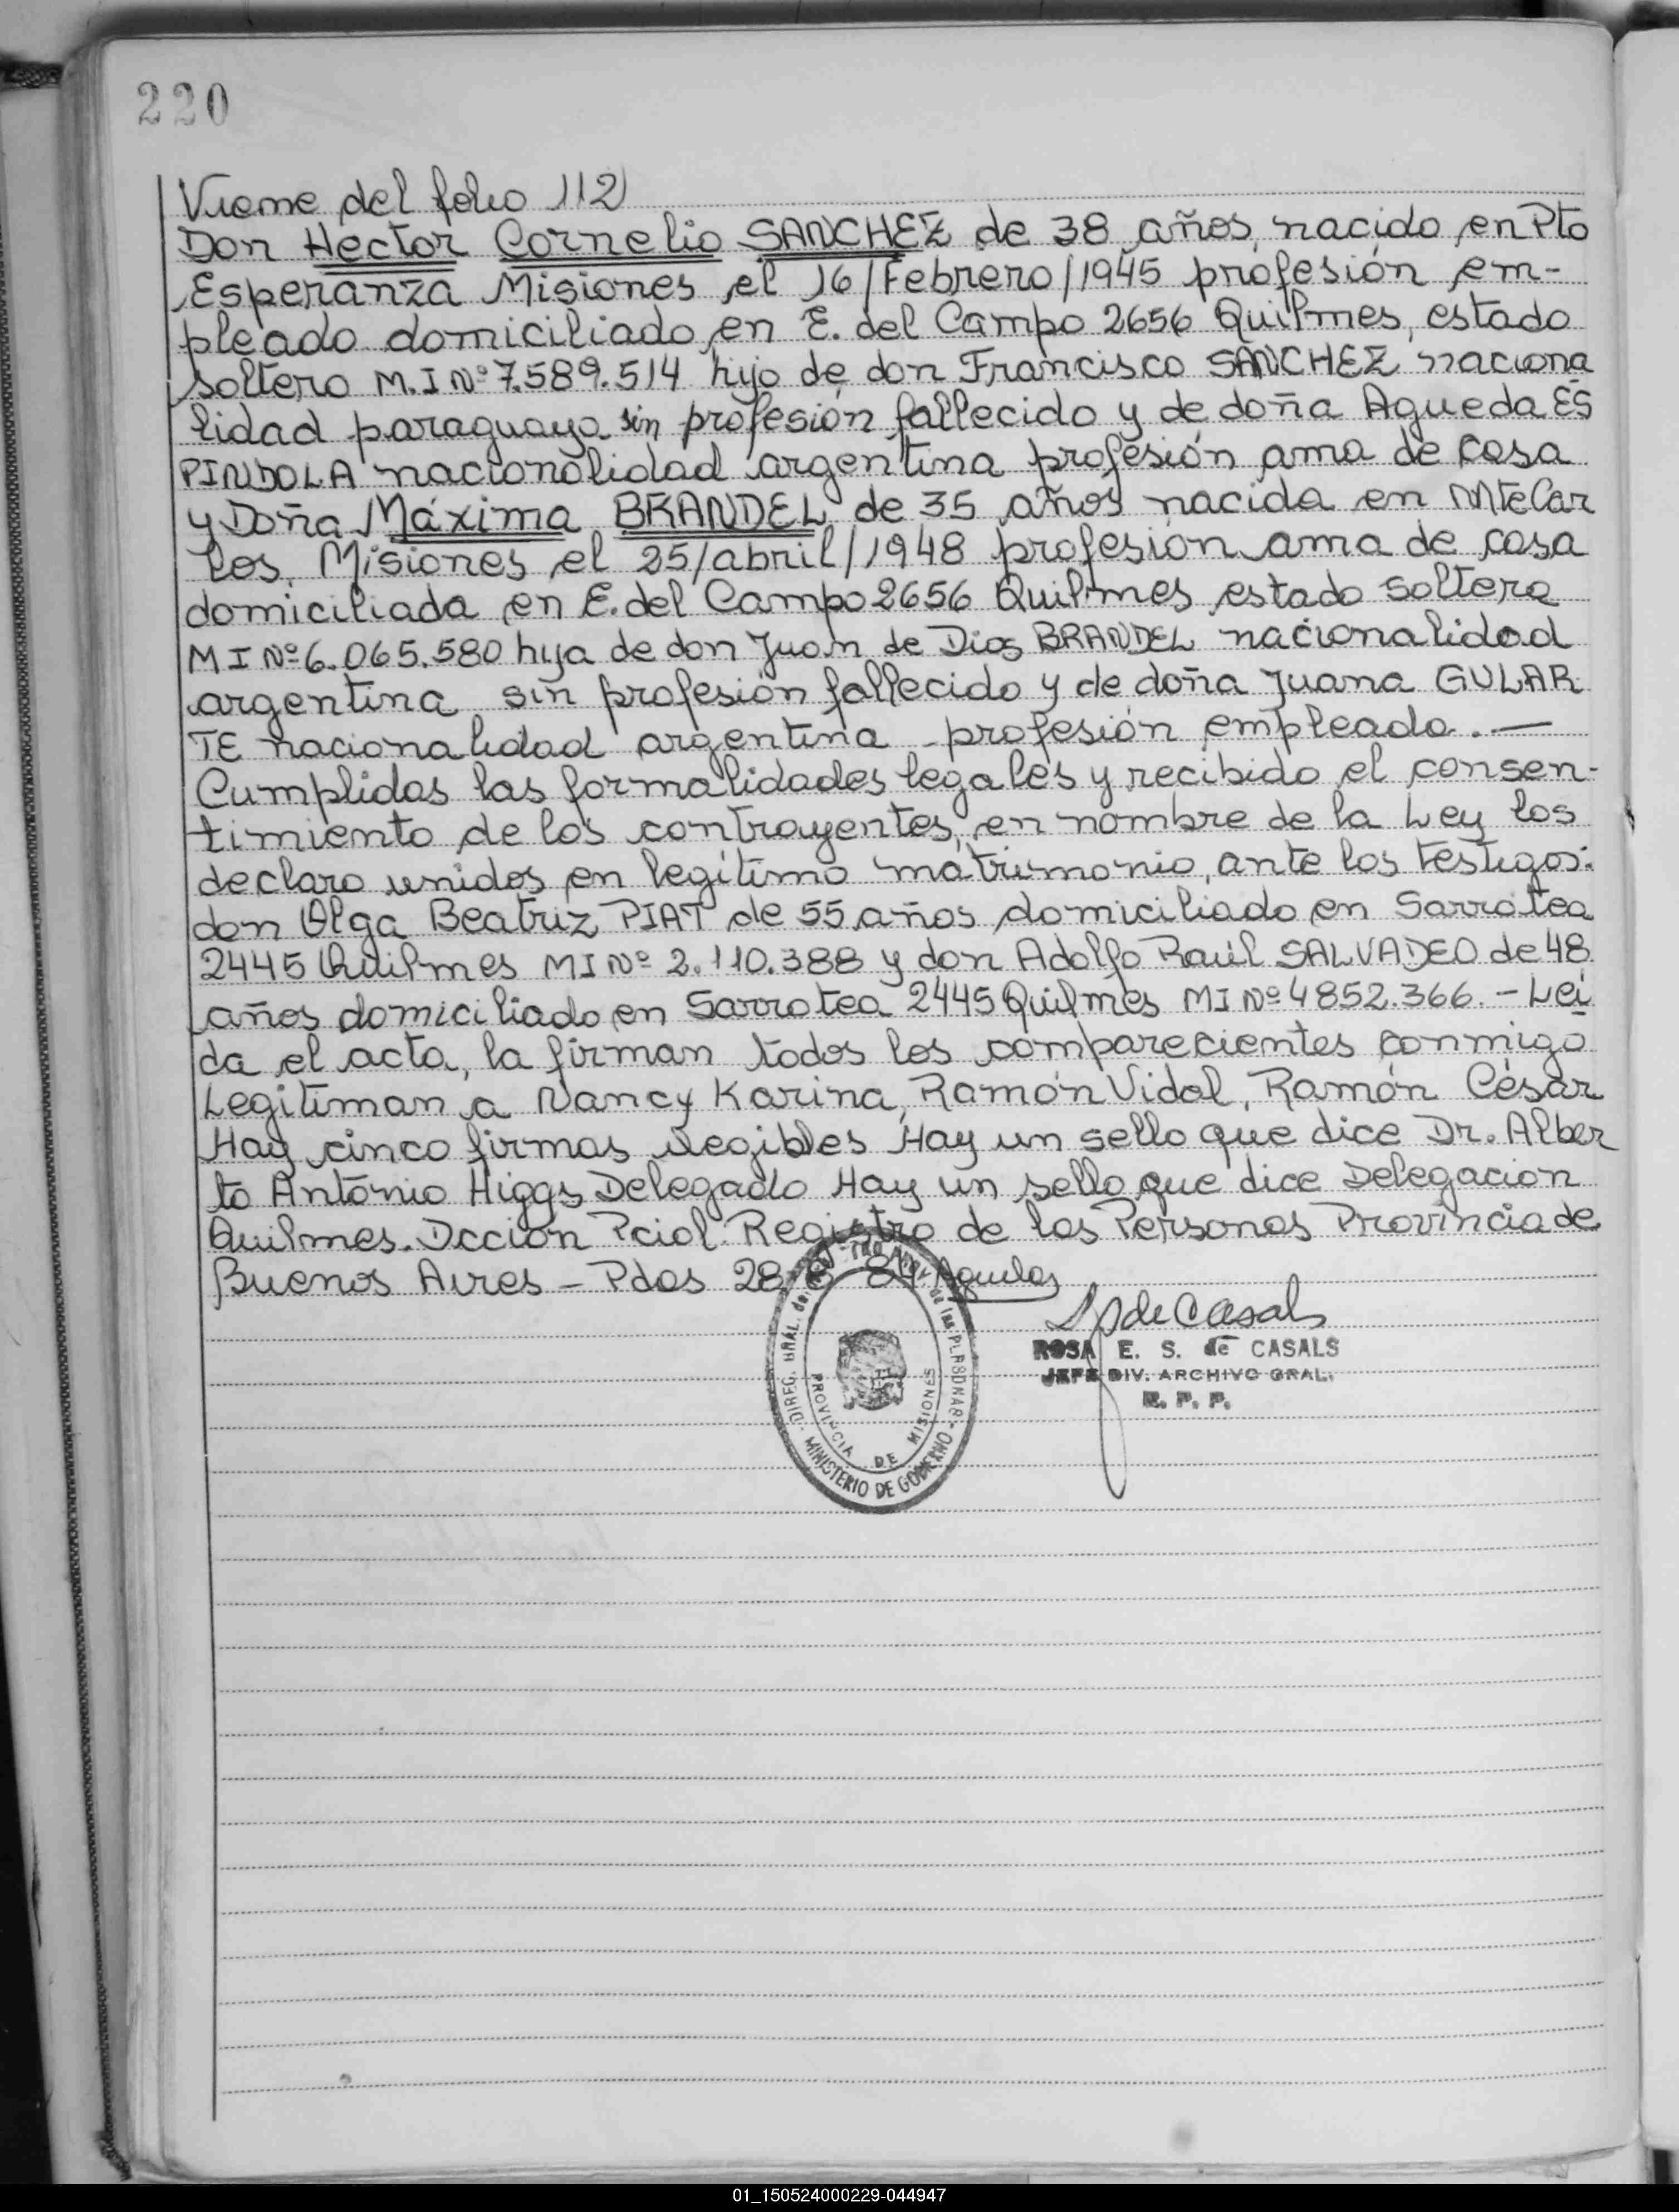 220
Viene del folio 112
Don Hector Cornelio SANCHEZ de 38 años, nacido en Pto
Esperanza Misiones el 16/Febrero/1945 profesión em-
pleado domiciliado en E. del Campo 2656 Quilmes, estado
soltero M.I Nº 7.589.514 hijo de don Francisco SANCHEZ naciona
lidad paraguaya sin profesión fallecido y de doña Agueda ES
PINDOLA nacionalidad argentina profesión ama de casa
y Doña Máxima BRANDEL de 35 años nacida en MteCar
los, Misiones el 25/abril/1948 profesion ama de casa
domiciliada en E. del Campo 2656 Quilmes estado soltera
M I Nº 6.065.580 hija de don Juan de Dios BRANDEL nacionalidad
argentina sin profesión fallecido y de doña Juana GULAR
TE nacionalidad argentina profesión empleada. —
Cumplidas las formalidades legales y recibido el consen-
timiento de los contrayentes, en nombre de la Ley los
declaro unidos en legítimo matrimonio, ante los testigos:
don Olga Beatriz PIAT de 55 años domiciliado en Sarrotea
2445 Quilmes MI Nº 2.110.388 y don Adolfo Raúl SALVADEO de 48
años domiciliado en Sarrotea 2445 Quilmes MI Nº 4852.366. - Leí
da el acta, la firman todos los comparecientes conmigo
Legitiman a Nancy Karina, Ramón Vidal, Ramón César
Hay cinco firmas ilegibles Hay un sello que dice Dr. Alber
to Antonio Higgs Delegado Hay un sello que dice Delegacion
Quilmes. Dccion Pcial. Registro de las Personas Provincia de
Buenos Aires - Pdas 28 84 Aguilas
DIREC. GRAL. de las PERSONAS
PROVINCIA DE MISIONES
MINISTERIO DE GOBIERNO
de Casals
ROSA E. S. de CASALS
JEFE DIV. ARCHIVO GRAL.
R. P. P.
01_150524000229-044947